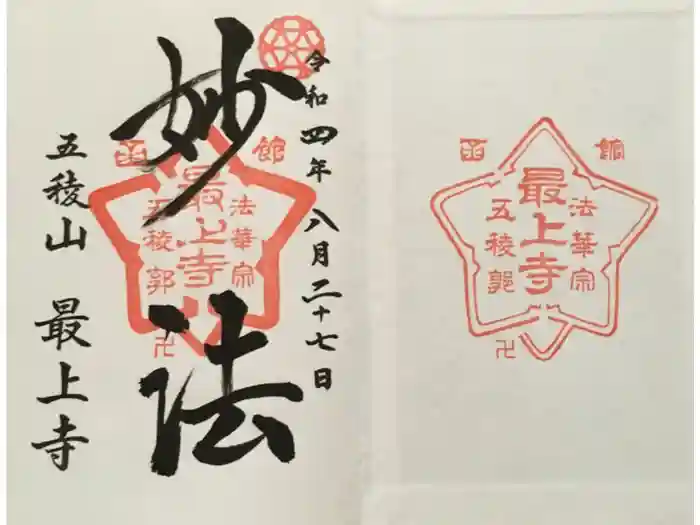 令和四年八月二十七日
妙法
五稜山 最上寺
函館
法華宗
最上寺
五稜郭
卍
函館
法華宗
最上寺
五稜郭
卍